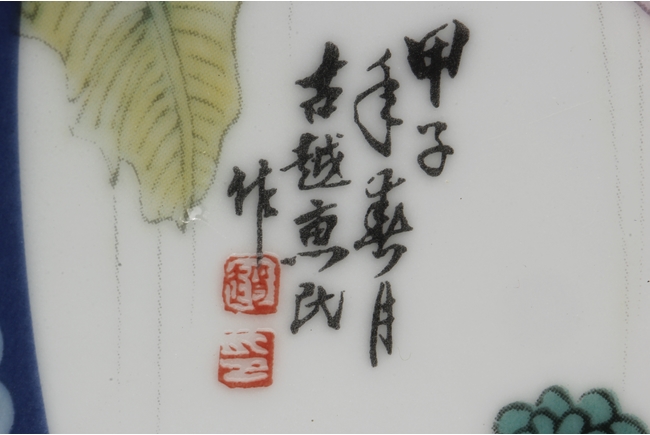 甲子
年春月
古越惠民
作